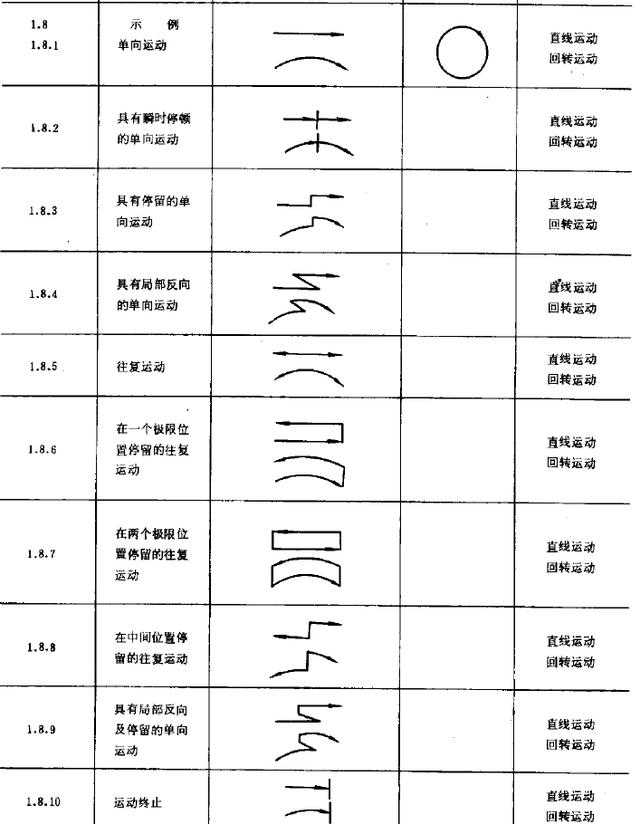 1.8
示 例
1.8.1
单向运动
直线运动
回转运动
1.8.2
具有瞬时停顿
的单向运动
直线运动
回转运动
1.8.3
具有停留的单
向运动
直线运动
回转运动
1.8.4
具有局部反向
的单向运动
直线运动
回转运动
1.8.5
往复运动
直线运动
回转运动
1.8.6
在一个极限位
置停留的往复
运动
直线运动
回转运动
1.8.7
在两个极限位
置停留的往复
运动
直线运动
回转运动
1.8.8
在中间位置停
留的往复运动
直线运动
回转运动
1.8.9
具有局部反向
及停留的单向
运动
直线运动
回转运动
1.8.10
运动终止
直线运动
回转运动